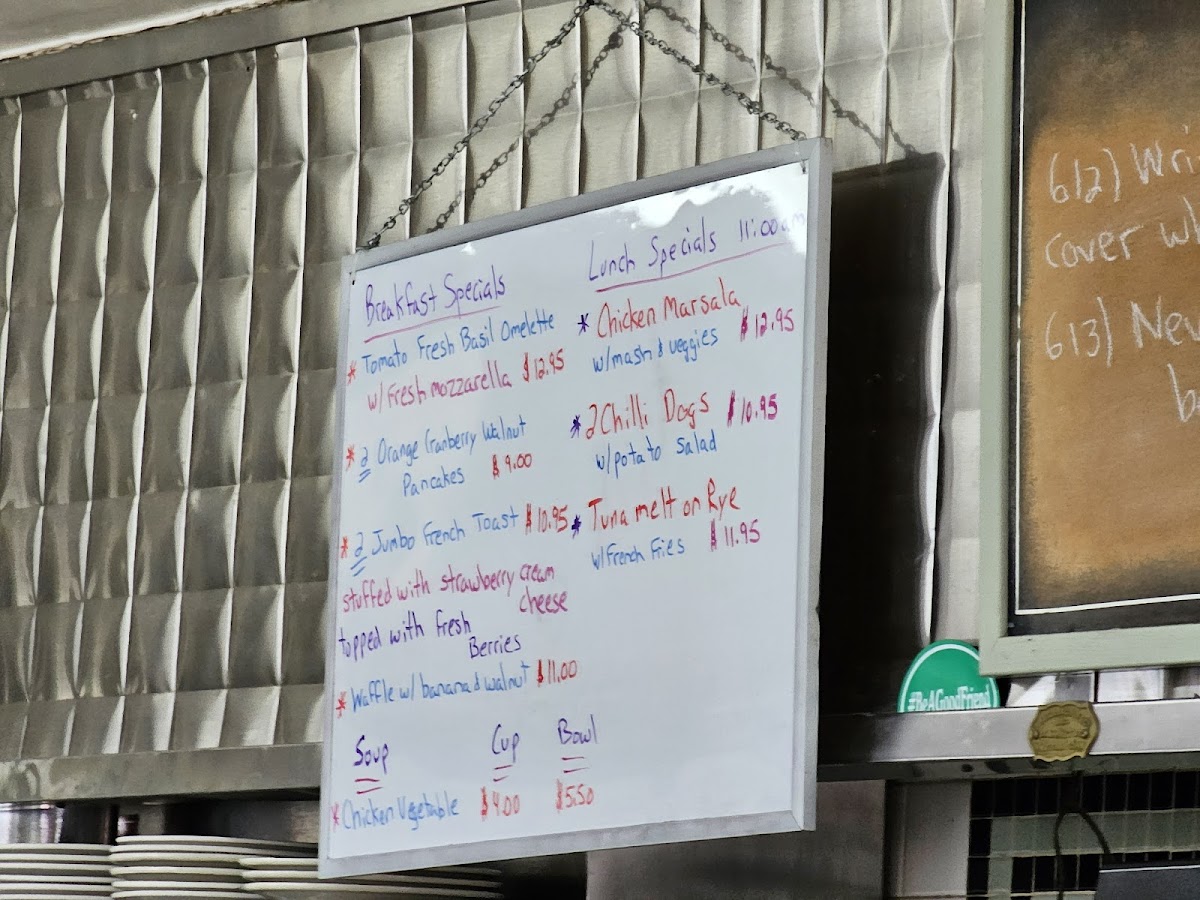 Breakfast Specials
* Tomato Fresh Basil Omelette
w/ Fresh mozzarella $12.95
* 2 Orange Cranberry Walnut
Pancakes $9.00
* 2 Jumbo French Toast $10.95
stuffed with strawberry cream
cheese
topped with fresh
Berries
* Waffle w/ banana & walnut $11.00
Soup Cup Bowl
* Chicken Vegetable $4.00 $5.50
Lunch Specials 11:00am
* Chicken Marsala
w/mash & veggies $12.95
* 2 Chilli Dogs $10.95
w/potato Salad
* Tuna melt on Rye
w/French Fries $11.95
612) Wri
cover wh
613) Nev
b
#BeAGoodFriend